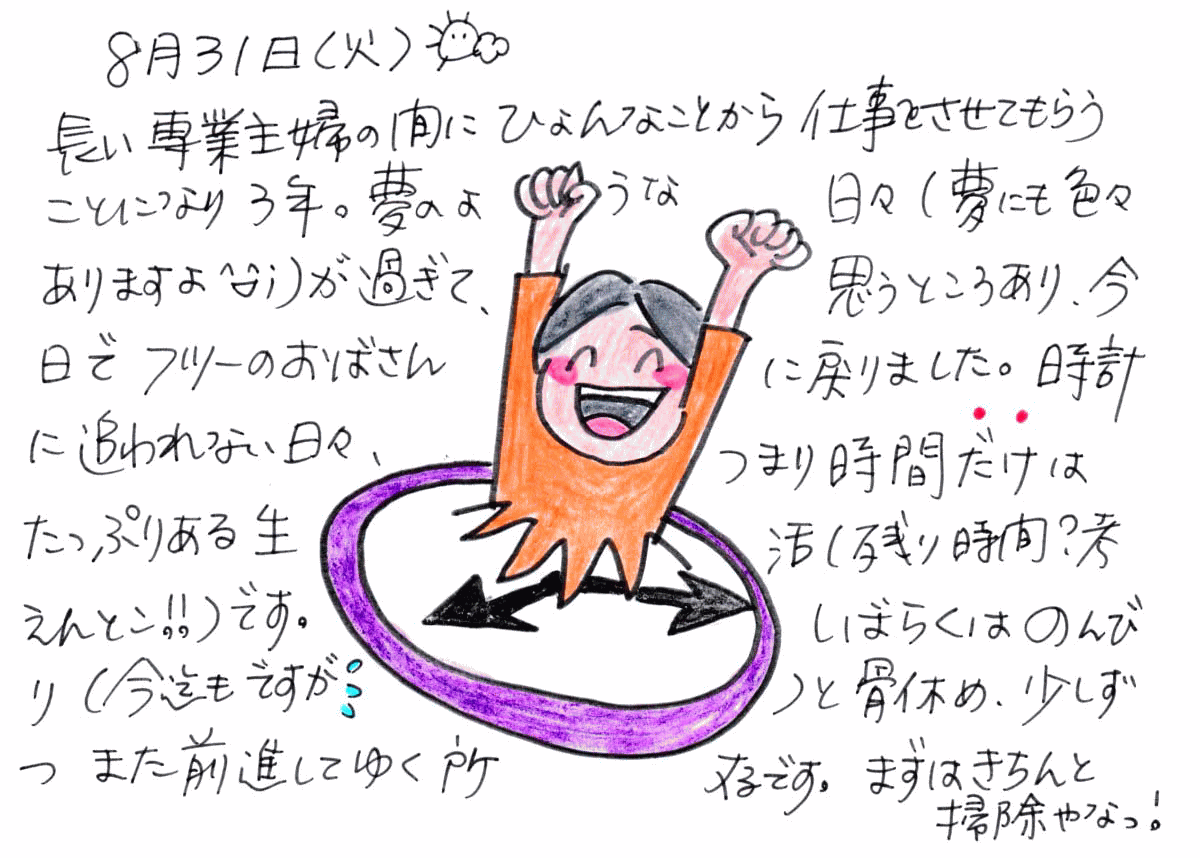 8月31日(火)
長い専業主婦の間にひょんなことから仕事をさせてもらう
ことになり3年。夢のような日々(夢にも色々
ありますよ^^;)が過ぎて、思うところあり、今
日でフツーのおばさんに戻りました。時計
に追われない日々、つまり時間だけは
たっぷりある生活(残り時間?考
えんとこ!!)です。しばらくはのんび
り(今迄もですが)と骨休め、少しず
つまた前進してゆく所存です。まずはきちんと
掃除やなっ!